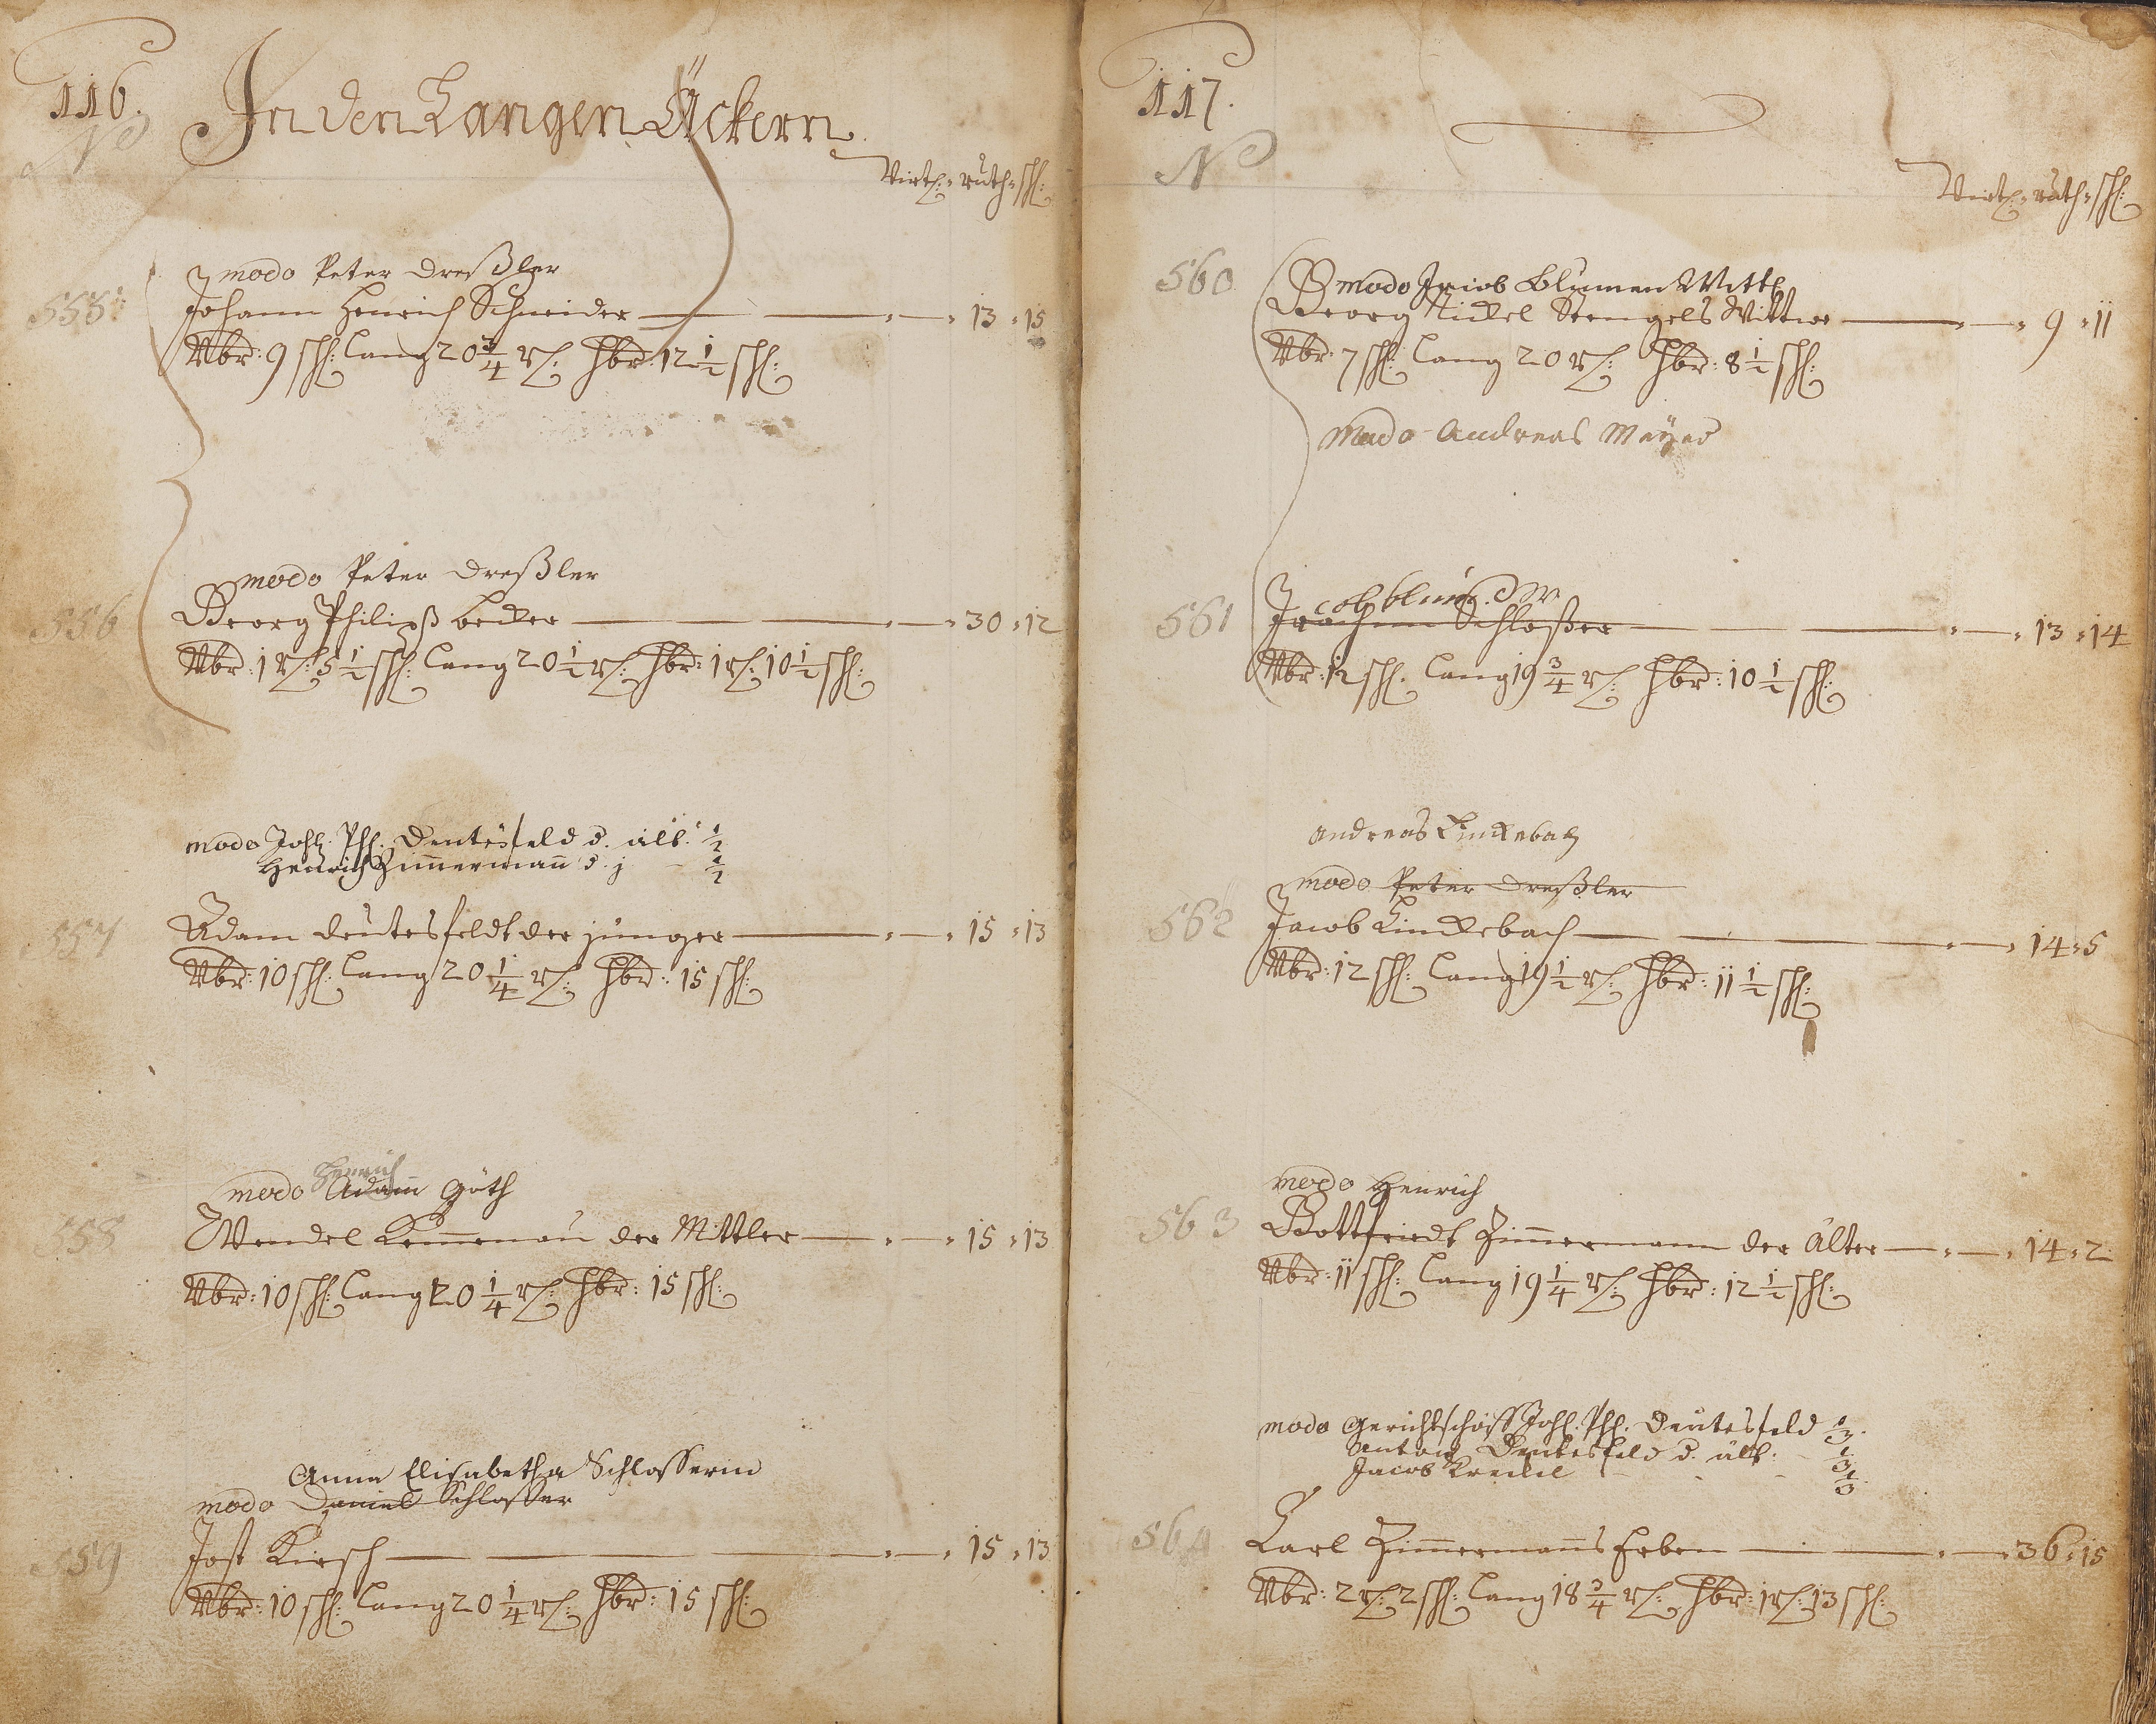 116.
In den Langen Äckern
No
Virtl: ruth: sch:
modo Peter Dreßler
555 Johann Henrich Schneider — 13 : 15
Nbr: 9 sch: lang 20 3/4 r: hbr: 12 1/2 sch:
modo Peter Dreßler
556 Georg Philipß becker — 30 : 12
Nbr: 1 r: 5 1/2 sch: lang 20 1/2 r: hbr: 1 r: 10 1/2 sch:
modo Joh: Phl: Deutesfeld d. ält: 1/2
Henrich Zimmermann d. j 1/2
557 Adam deutesfeldt der jünger — 15 : 13
Nbr: 10 sch: lang 20 1/4 r: hbr: 15 sch:
Henrich
modo Adam Göth
558 Wendel Kemenau der Mittler — 15 : 13
Nbr: 10 sch: lang 20 1/4 r: hbr: 15 sch:
Anna Elisabetha Schlosserin
modo Daniel Schlosser
559 Jost Kirsch — 15 : 13
Nbr: 10 sch: lang 20 1/4 r: hbr: 15 sch:
117.
No
Virtl: ruth: sch:
modo Jacob Blumen Wittb
560 Georg Nickel Stengels Wittwe — 9 : 11
Nbr: 7 sch: lang 20 r: hbr: 8 1/2 sch:
Modo Andreas Meÿer
Jacob blum d W
561 Jrachim Schloßer — 13 : 14
Nbr: 12 sch: lang 19 3/4 r: hbr: 10 1/2 sch:
Andreas Linckebach
modo Peter Dreßler
562 Jacob Linckebach — 14 : 5
Nbr: 12 sch: lang 19 1/2 r: hbr: 11 1/2 sch:
modo Henrich
563 Gottfriedt Zimmermann der Älter — 14 : 2
Nbr: 11 sch: lang 19 1/4 r: hbr: 12 1/2 sch:
modo Gerichtschöff Joh: Phl: Deutesfeld 1/3
Anton Deutesfeld d. ält: 1/3
Jacob Kreckel 1/3
564 Carl Zimmermanns Erben — 36 : 15
Nbr: 2 r: 2 sch: lang 18 3/4 r: hbr: 1 r: 13 sch: